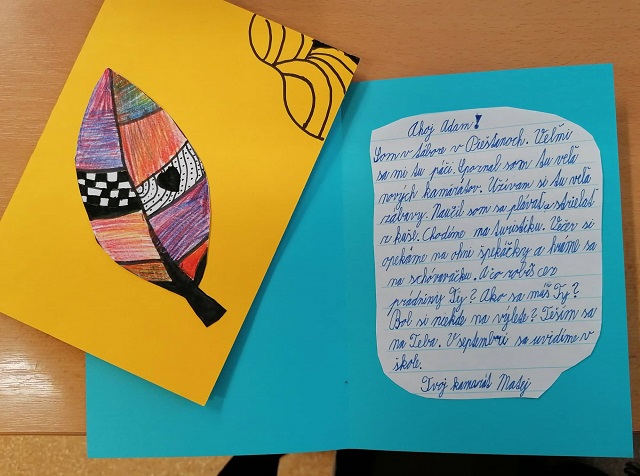 Ahoj Adam!
Som v tábore v Piešťanoch. Veľmi
sa mi tu páči. Spoznal som tu veľa
nových kamarátov. Užívam si tu veľa
zábavy. Naučil som sa plávať a strieľať
z kuše. Chodíme na turistiku. Večer si
opekáme na ohni špekáčky a hráme sa
na schovávačku. A čo robíš cez
prázdniny Ty? Ako sa máš Ty?
Bol si niekde na výlete? Teším sa
na Teba. V septembri sa uvidíme v
škole.
Tvoj kamarát Matej